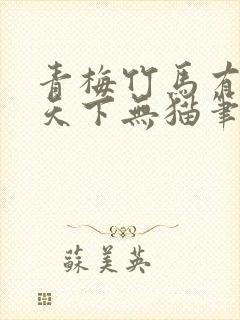 青梅竹馬有
天下無貓筆
蘇美英